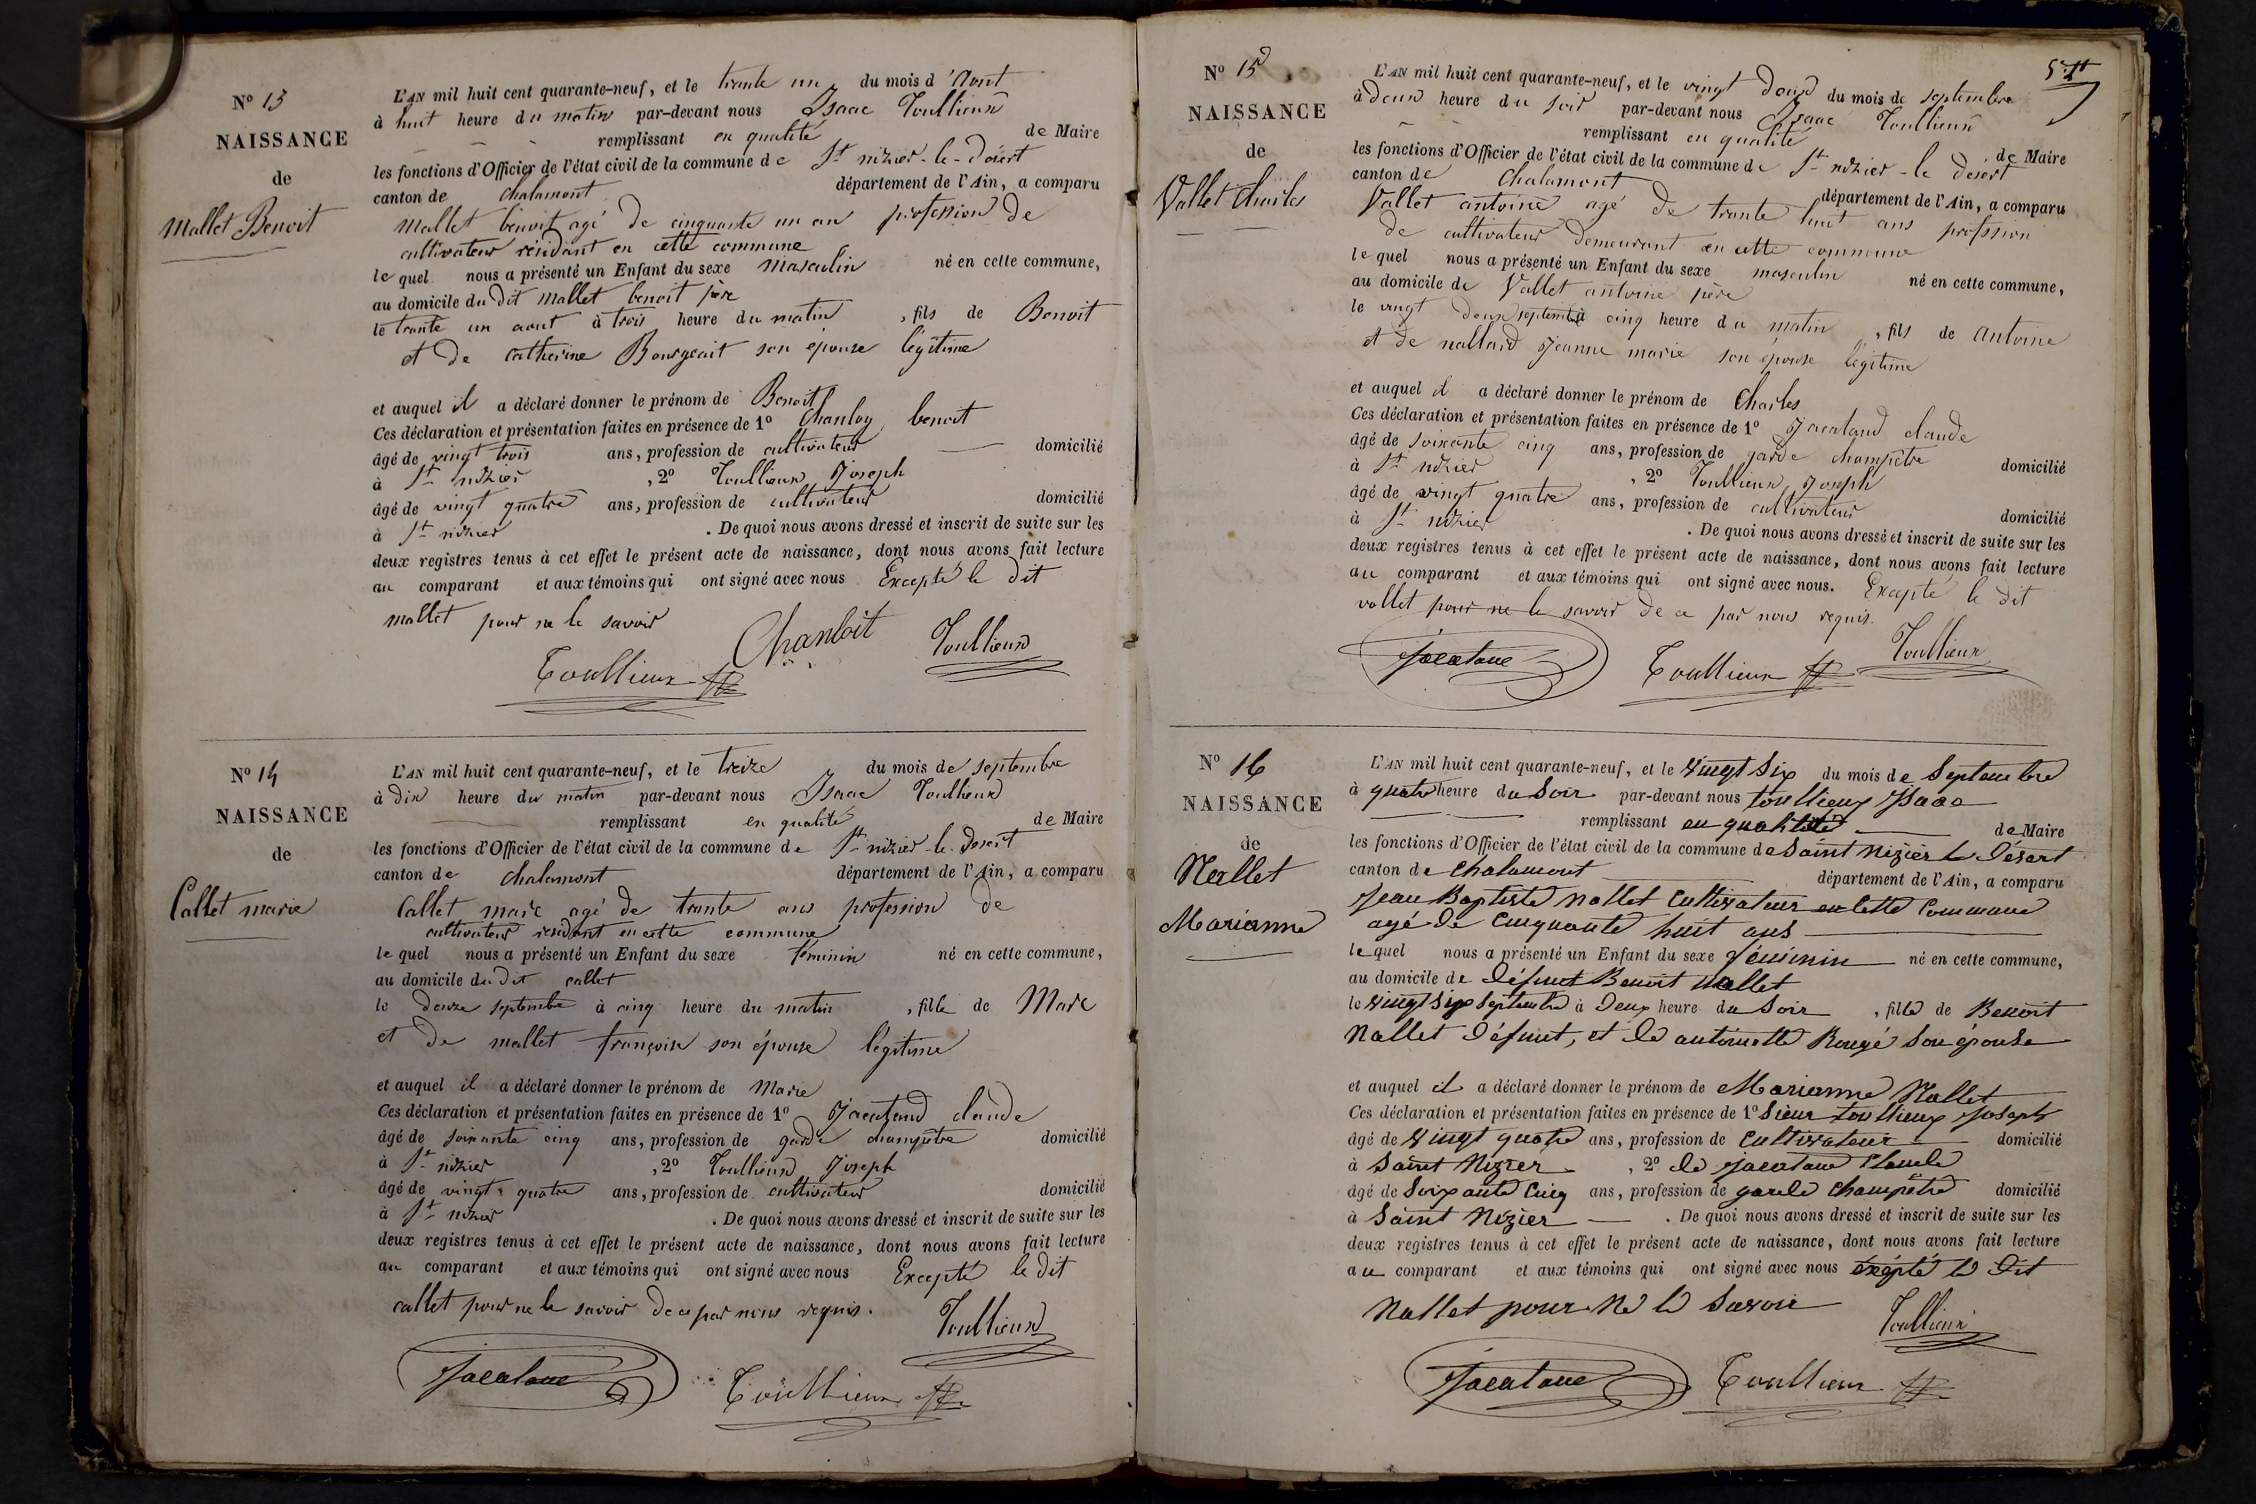 N° 13
NAISSANCE
de
Mallet Benoit
L'AN mil huit cent quarante-neuf, et le trente un du mois d'Aout
à huit heure du matin par-devant nous Isaac Toullieux
remplissant en qualité de Maire
les fonctions d'Officier de l'état civil de la commune de St nizier-le-désert
canton de Chalamont département de l'Ain, a comparu
Mallet benoit agé de cinquante un an profession de
cultivateur résidant en cette commune
le quel nous a présenté un Enfant du sexe masculin né en cette commune,
au domicile du dit Mallet benoit père
le trente un aout à trois heure du matin, fils de Benoit
et de Catherine Bourgeait son épouse légitime
et auquel il a déclaré donner le prénom de Benoit
Ces déclaration et présentation faites en présence de 1° Chanloy benoit
âgé de vingt trois ans, profession de cultivateur domicilié
à St nizier, 2° Toullieux Joseph
âgé de vingt quatre ans, profession de cultivateur domicilié
à St nizier. De quoi nous avons dressé et inscrit de suite sur les
deux registres tenus à cet effet le présent acte de naissance, dont nous avons fait lecture
au comparant et aux témoins qui ont signé avec nous Excepté le dit
mallet pour ne le savoir
Chanloit Toullieux
Toullieux
N° 14
NAISSANCE
de
Callet marie
L'AN mil huit cent quarante-neuf, et le treize du mois de septembre
à dix heure du matin par-devant nous Isaac Toullieux
remplissant en qualité de Maire
les fonctions d'Officier de l'état civil de la commune de St nizier-le-Desert
canton de Chalamont département de l'Ain, a comparu
Callet marc agé de trente ans profession de
cultivateur résidant en cette commune
le quel nous a présenté un Enfant du sexe féminin né en cette commune,
au domicile du dit callet
le douze septembre à cinq heure du matin, fille de Marc
et de mallet françoise son épouse légitime
et auquel il a déclaré donner le prénom de Marie
Ces déclaration et présentation faites en présence de 1° Jacataud claude
âgé de soixante cinq ans, profession de garde champêtre domicilié
à St nizier, 2° Toullieux Joseph
âgé de vingt quatre ans, profession de cultivateur domicilié
à St nizier. De quoi nous avons dressé et inscrit de suite sur les
deux registres tenus à cet effet le présent acte de naissance, dont nous avons fait lecture
au comparant et aux témoins qui ont signé avec nous Excepté le dit
callet pour ne le savoir de ce par nous requis.
Toullieux
Jacataue Toullieux
N° 15
NAISSANCE
de
Vallet Charles
L'AN mil huit cent quarante-neuf, et le vingt deux du mois de septembre
à deux heure du soir par-devant nous Isaac Toullieux
remplissant en qualité de Maire
les fonctions d'Officier de l'état civil de la commune de St nizier-le désert
canton de Chalamont département de l'Ain, a comparu
Vallet antoine agé de trente huit ans profession
de cultivateur demeurant en cette commune
le quel nous a présenté un Enfant du sexe masculin né en cette commune,
au domicile de Vallet antoine père
le vingt deux septembre à cinq heure du matin, fils de Antoine
et de nallard Jeanne marie son épouse légitime
et auquel il a déclaré donner le prénom de Charles
Ces déclaration et présentation faites en présence de 1° Jacataud claude
âgé de soixante cinq ans, profession de garde champêtre domicilié
à St nizier, 2° Toullieux Joseph
âgé de vingt quatre ans, profession de cultivateur domicilié
à St nizier. De quoi nous avons dressé et inscrit de suite sur les
deux registres tenus à cet effet le présent acte de naissance, dont nous avons fait lecture
au comparant et aux témoins qui ont signé avec nous. Excepté le dit
vallet pour ne le savoir de ce par nous requis.
Jacataue Toullieux Toullieux
N° 16
NAISSANCE
de
Nallet
Marianne
L'AN mil huit cent quarante-neuf, et le vingt six du mois de Septembre
à quatre heure du Soir par-devant nous toullieux Isaac
remplissant en qualité de Maire
les fonctions d'Officier de l'état civil de la commune de Saint Nizier le Désert
canton de Chalamont département de l'Ain, a comparu
Jean Baptiste Nallet Cultivateur en Cette Commune
agé de Cinquante huit ans
le quel nous a présenté un Enfant du sexe féminin né en cette commune,
au domicile de défunt Benoit Nallet
le vingt six Septembre à Deux heure du Soir, fille de Benoit
Nallet défunt, et de antoinette Rougé Son épouse
et auquel il a déclaré donner le prénom de Marianne Nallet
Ces déclaration et présentation faites en présence de 1° Sieur toullieux Joseph
âgé de vingt quatre ans, profession de Cultivateur domicilié
à Saint Nizier, 2° de Jacataue Claude
âgé de Soixante Cinq ans, profession de garde Champêtre domicilié
à Saint Nizier. De quoi nous avons dressé et inscrit de suite sur les
deux registres tenus à cet effet le présent acte de naissance, dont nous avons fait lecture
au comparant et aux témoins qui ont signé avec nous éxépté le Dit
Nallet pour Ne le Savoir
Toullieux
Jacataue Toullieux